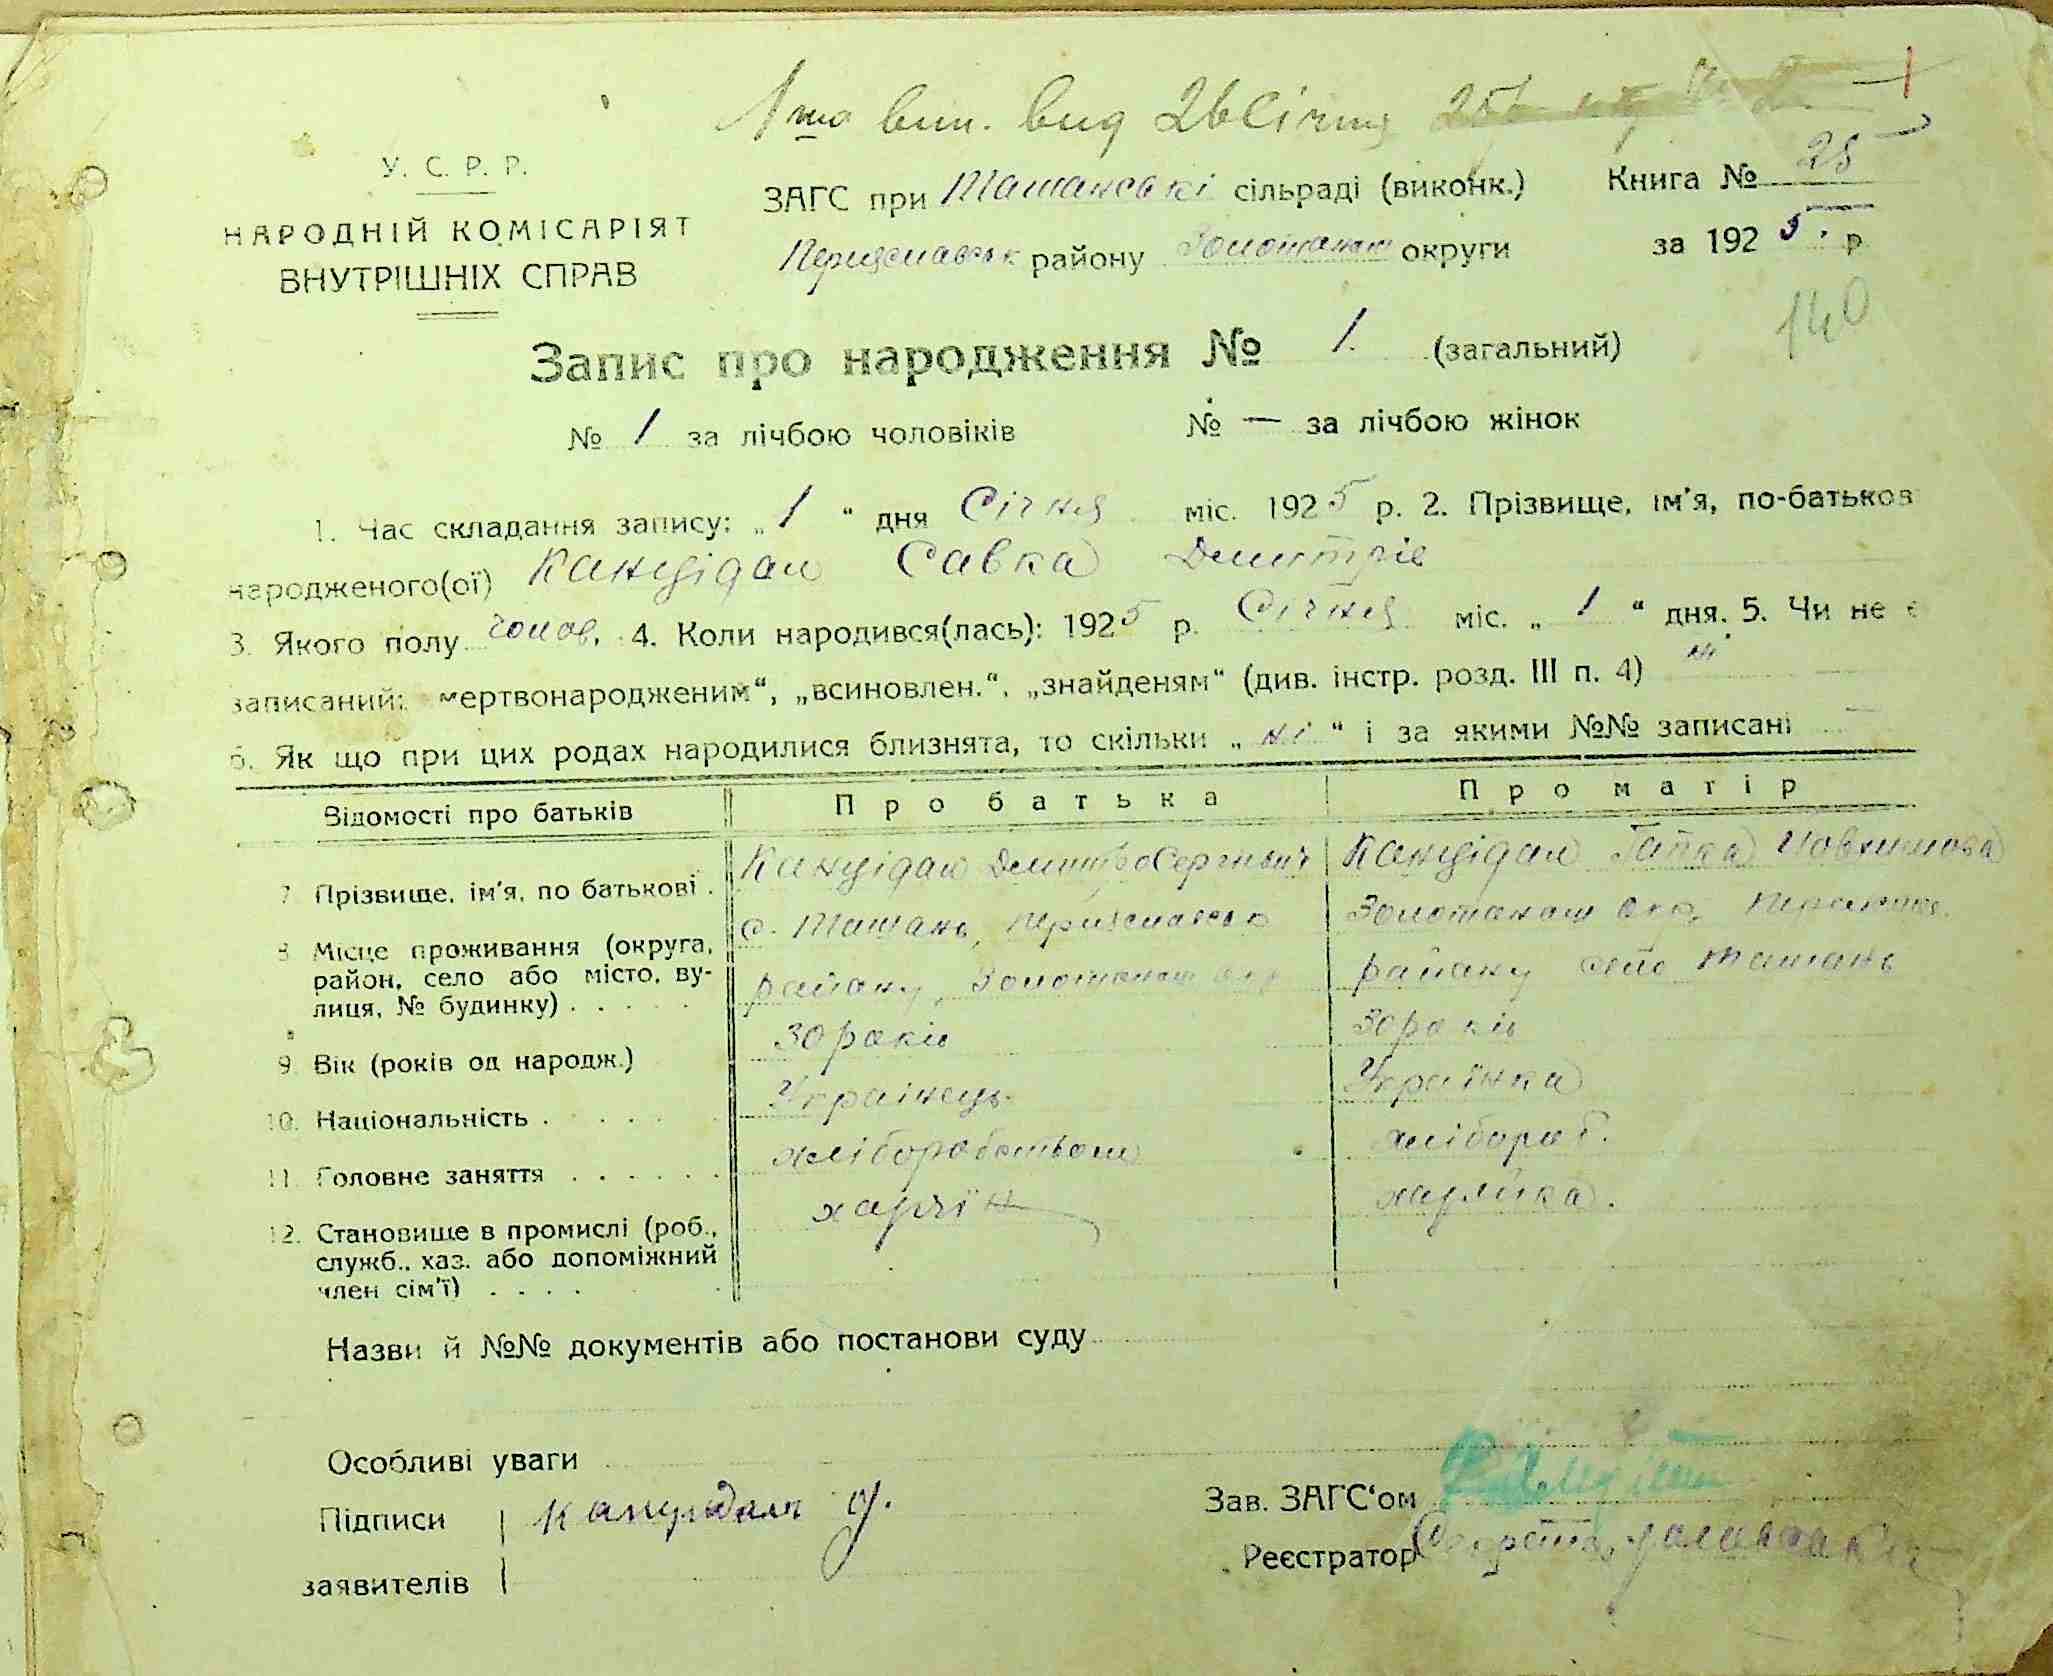 1 ша вип. вид 26 Січня
У. С. Р. Р.
НАРОДНІЙ КОМІСАРІЯТ
ВНУТРІШНІХ СПРАВ
ЗАГС при Ташанські сільраді (виконк.) Книга № 25
Переяславськ району Золотонош округи за 1925. р
140
Запис про народження № 1. (загальний)
№ 1 за лічбою чоловіків № — за лічбою жінок
1. Час складання запису: „1“ дня Січня міс. 1925 р. 2. Прізвище, ім'я, по-батьков
народженого(ої) Канцідал Савка Дмитріє
3. Якого полу чолов. 4. Коли народився(лась): 1925 р. Січня міс. „1“ дня. 5. Чи не є
записаний: мертвонародженим“, „всиновлен.“, „знайденям“ (див. інстр. розд. III п. 4) ні
6. Як що при цих родах народилися близнята, то скільки „ні“ і за якими №№ записані —
Відомості про батьків Про батька Про матір
7. Прізвище, ім'я, по батькові . Канцідал Дмитро Сергиєвич Канцідал Гапка Йовхимова
8. Місце проживання (округа, район, село або місто, вулиця, № будинку) . . . . .
с. Ташань, Переяславськ Золотонош окр.
району, Золотонош окр району село Ташань
9. Вік (років од народж.) 30 років 30 років
10. Національність . . . . . Українець. Українка
11. Головне заняття . . . . . . хліборобством хлібороб.
12. Становище в промислі (роб., служб., хаз. або допоміжний член сім'ї) . . . .
хазяїн хазяйка.
Назви й №№ документів або постанови суду
Особливі уваги
Підписи Канцидал
заявителів
Зав. ЗАГС‘ом
Реєстратор Секретар